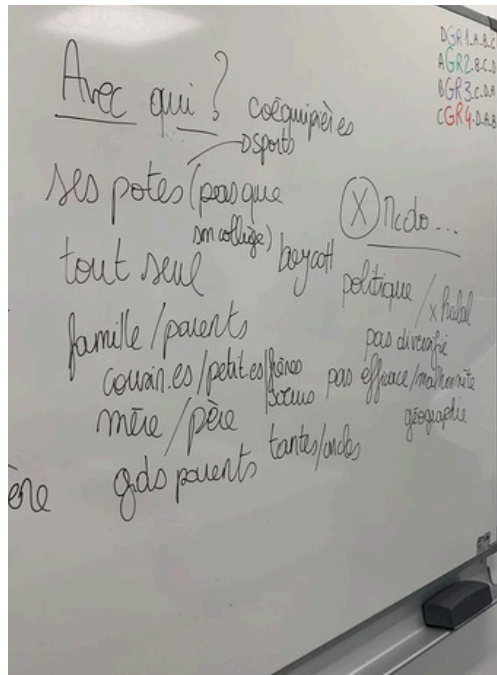 Avec qui ?
coéquipières
sports
ses potes (pas que son collège)
tout seul
famille / parents
cousin.es / petit.es / frères soeurs
mère / père
gds parents
tantes / oncles
ère
X Mcdo...
boycott
politique / x halal
pas diversifié
pas efficace / malhonnête
géographie
DGR1.A.B.C
AGR2.B.C.D
BGR3.C.D.A
CGR4.D.A.B